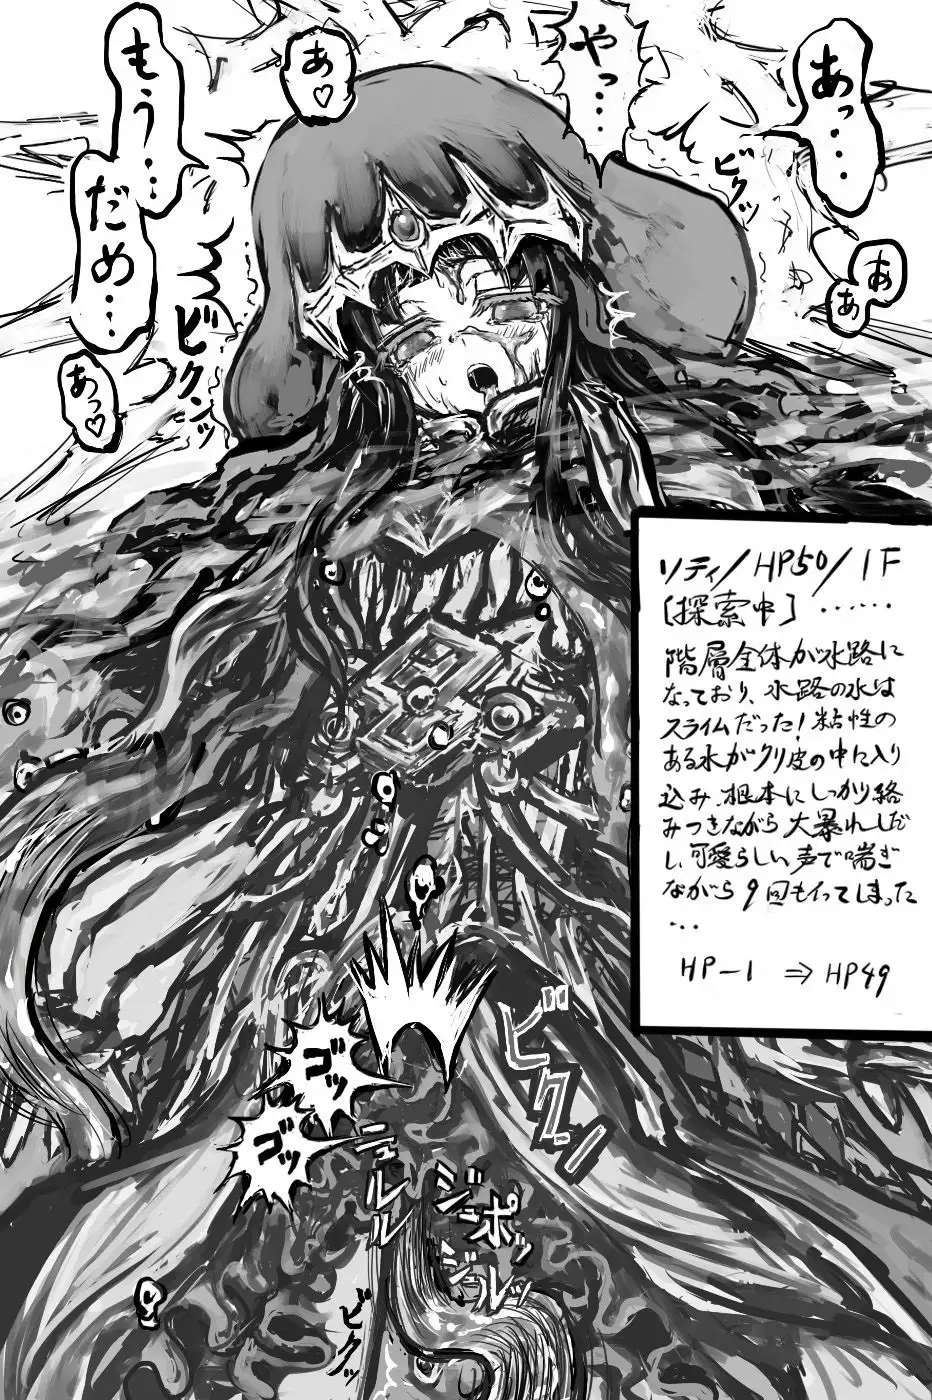 あっ…
やっ…
あ♡
もう…
だめ…
あっ♡
ああ
ビクッ
ビクンッ
ソティ/HP50/1F
[探索中]……
階層全体が水路に
なっており、水路の水は
スライムだった!粘性の
ある水がクリ皮の中に入り
込み、根本にしっかり絡
みつきながら大暴れしだ
し、可愛らしい声で喘ぎ
ながら9回もイってしまった
…
HP-1 ⇒ HP49
ビクンッ
ゴッ
ゴッ
ニュルル
ジュポッ
ジュルッ
ビクッ